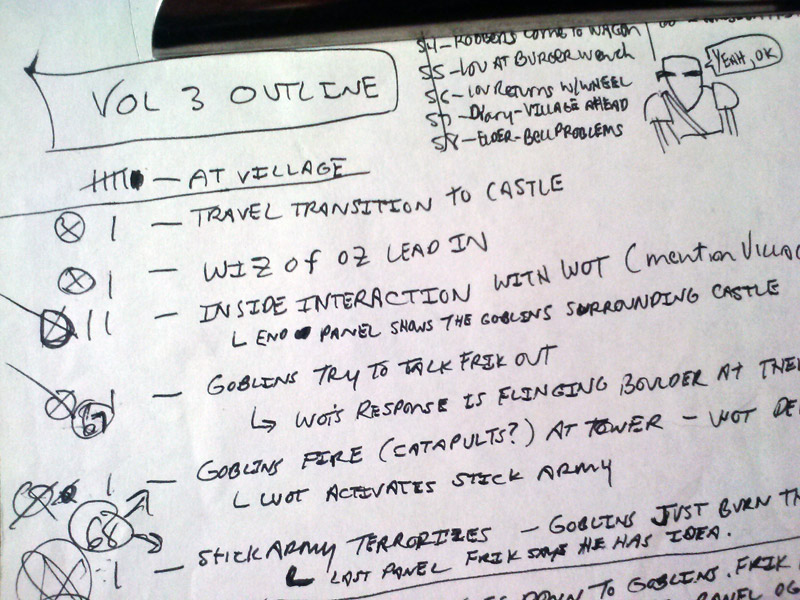 54 - ROBBERS COME TO WAGON
55 - LOU AT BURGER WENCH
56 - LOU RETURNS W/WHEEL
57 - Diary - VILLAGE AHEAD
58 - ELDER - BELL PROBLEMS
YEAH, OK
VOL 3 OUTLINE
— AT VILLAGE
1 — TRAVEL TRANSITION TO CASTLE
1 — WIZ of OZ LEAD IN
11 — INSIDE INTERACTION WITH WOT (mention
END PANEL SHOWS THE GOBLINS SURROUNDING CASTLE
1 — GOBLINS TRY TO TALK FRIK OUT
67
WOT'S RESPONSE IS FLINGING BOULDER AT
1 — GOBLINS FIRE (CATAPULTS?) AT TOWER — WOT
WOT ACTIVATES STICK ARMY
68
1 — STICK ARMY TERRORIZES — GOBLINS JUST BURN
LAST PANEL FRIK SAYS HE HAS IDEA.
DOWN TO GOBLINS. FRIK
PANEL